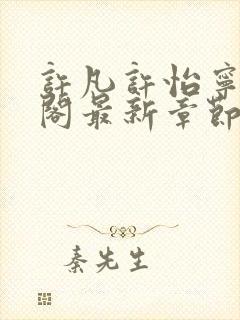 許凡許怡寧
閣最新章節
秦先生